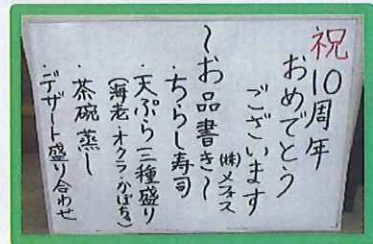 祝10周年
おめでとう
ございます
(株)メネス
～お品書き～
・ちらし寿司
・天ぷら三種盛り
(海老・オクラ・かぼちゃ)
・茶碗蒸し
・デザート盛り合わせ